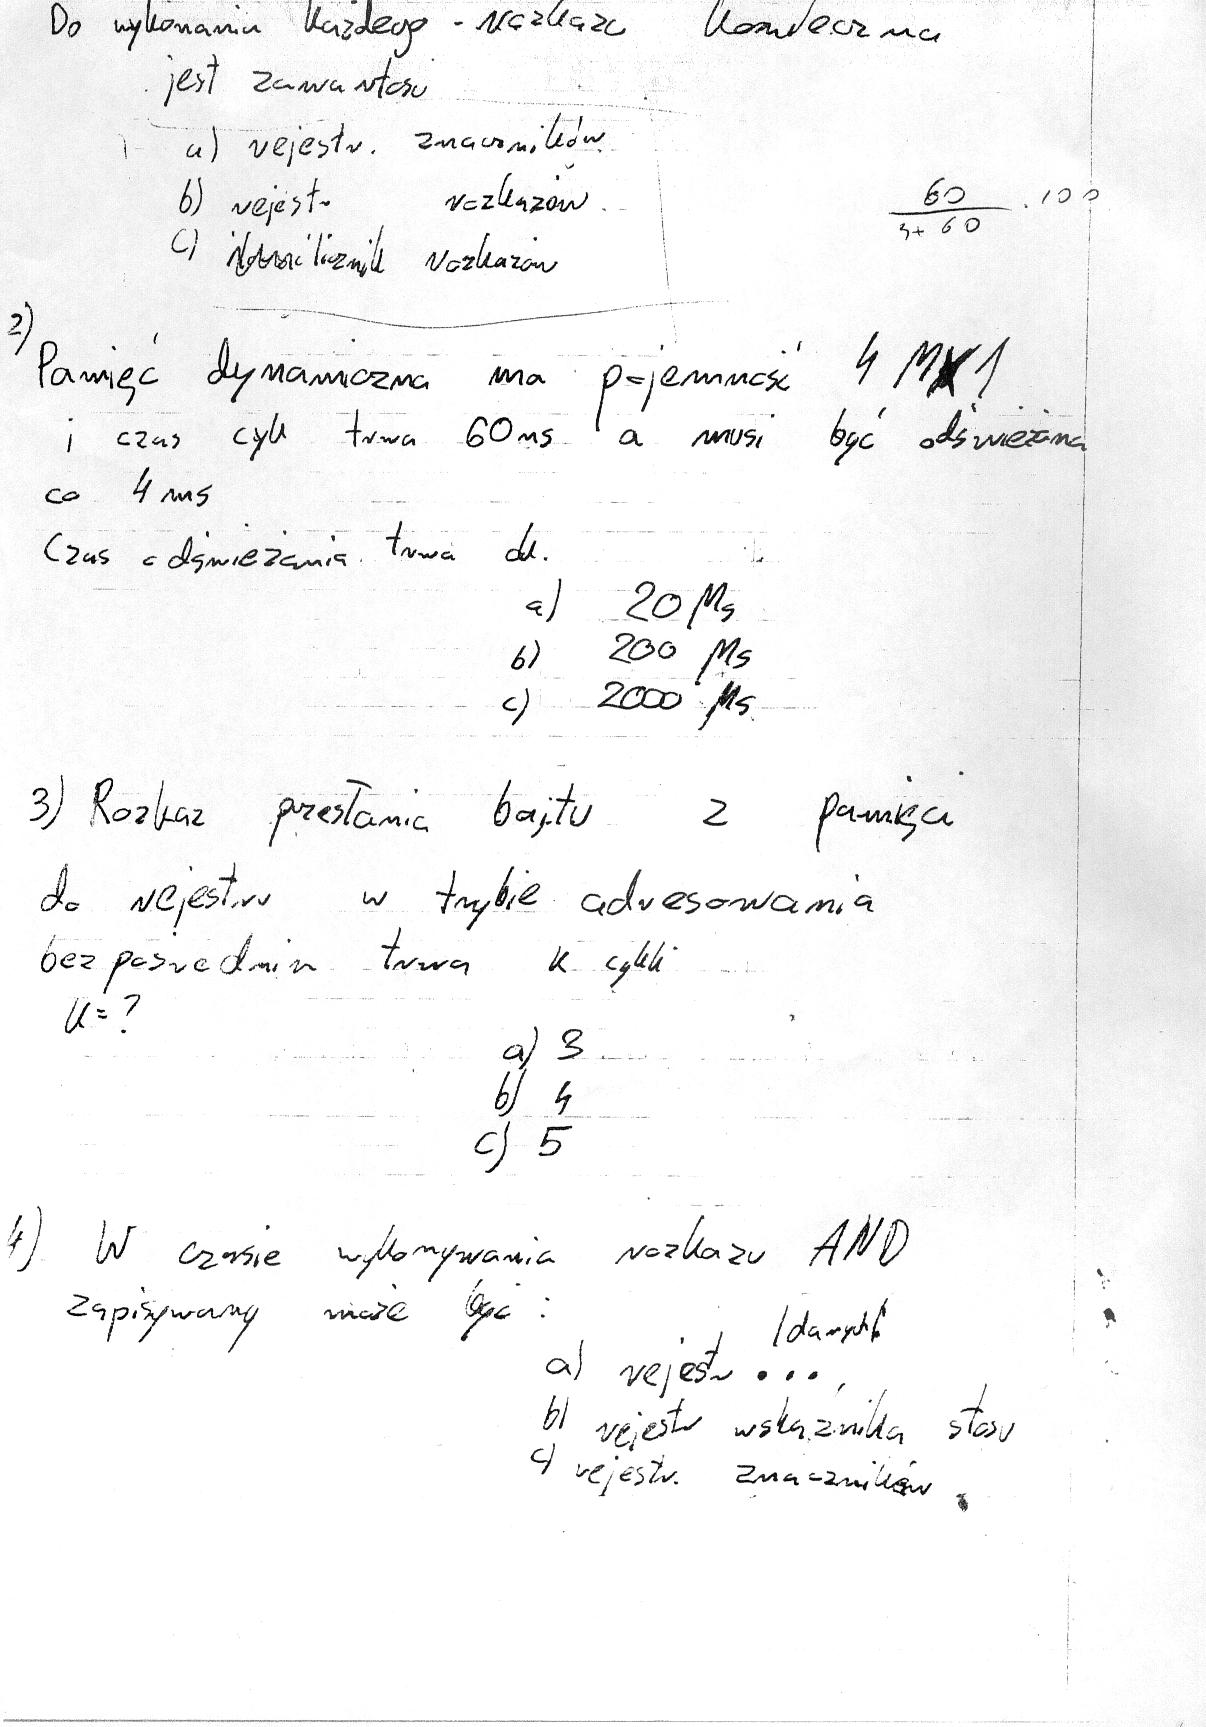 Do wykonania każdego rozkazu konieczna
jest zawartość
a) rejestr. znaczników
b) rejestr rozkazów
c) licznik rozkazów
60
/ 3+60 · 100
2)
Pamięć dynamiczna ma pojemność 4 M x 1
i czas cykl trwa 60ns a musi być odświeżana
co 4 ms
Czas odświeżania trwa ok.
a) 20 Ms
b) 200 Ms
c) 2000 Ms
3) Rozkaz przesłania bajtu z pamięci
do rejestru w trybie adresowania
bezpośrednim trwa k cykli
k=?
a) 3
b) 4
c) 5
4) W czasie wykonywania rozkazu AND
zapisywany może być :
/danych/
a) rejestr ...
b) rejestr wskaźnika stosu
c) rejestr. znaczników